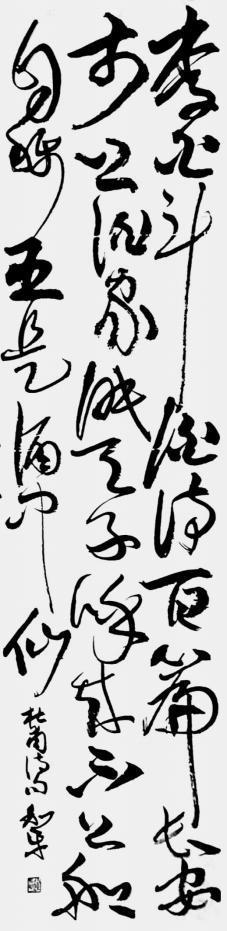 李白斗酒诗百篇长安
市上酒家眠天子呼来不上船
自称臣是酒中仙
杜甫诗